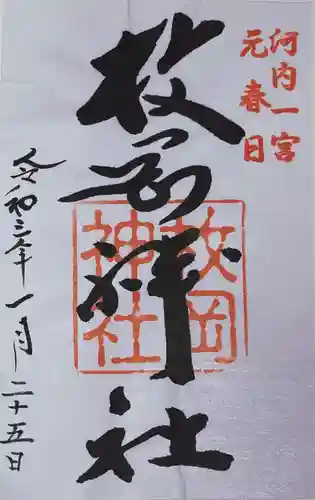 河内一宮
元春日
枚岡神社
枚岡
神社
令和三年一月二十五日